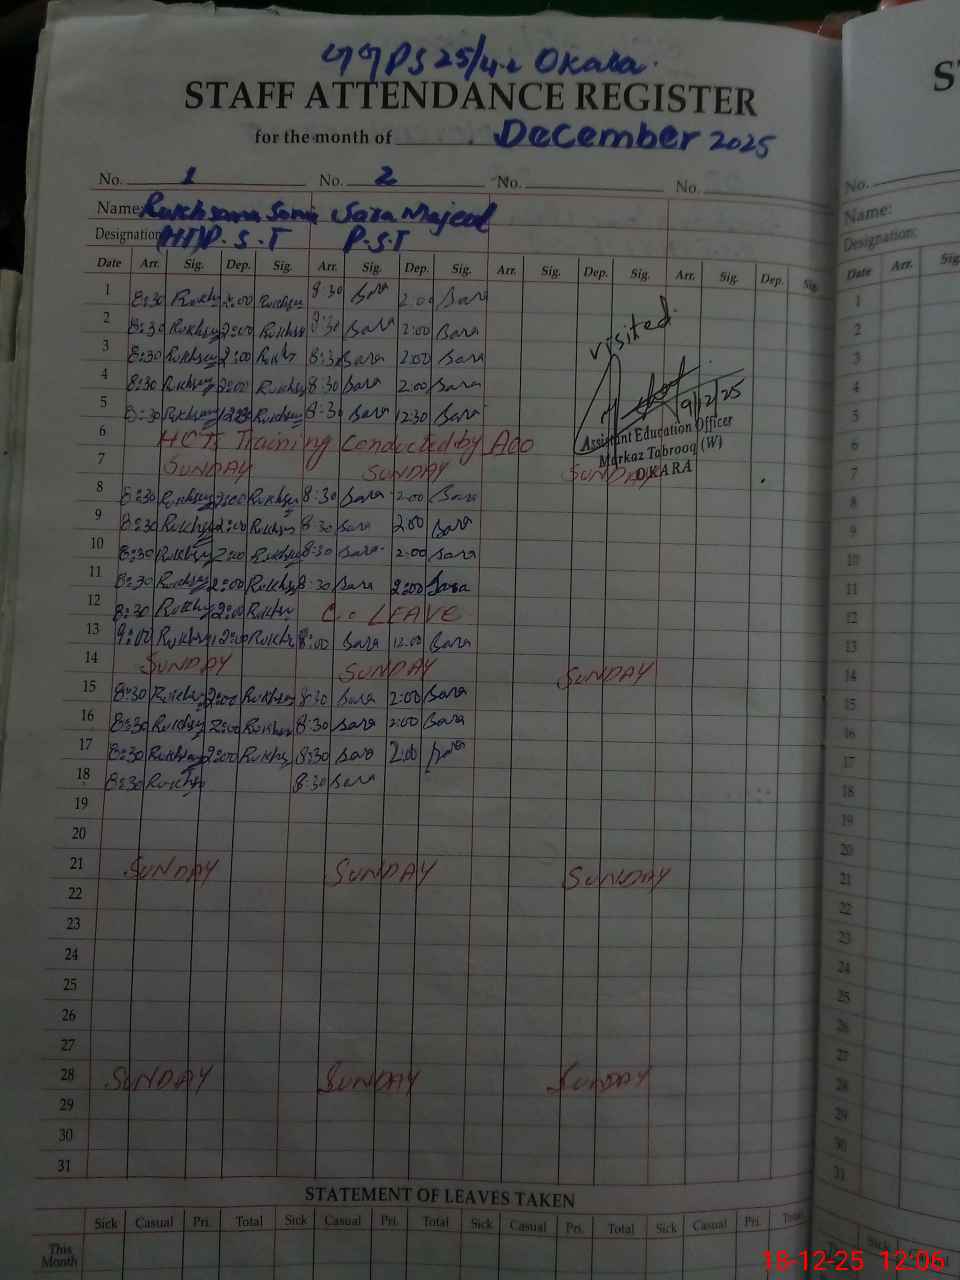 GGPS 25/4.L Okara.
STAFF ATTENDANCE REGISTER
for the month of December 2025
No. 1 No. 2 No. No.
Name: Rukhsana Sara Majeed
Designation: (HT) P.S.T P.S.T
Date Arr. Sig. Dep. Sig. Arr. Sig. Dep. Sig. Arr. Sig. Dep. Sig. Arr. Sig. Dep. Sig.
1 8:30 Rukhs 2:00 Rukhsn 8:30 Sara 2:00 Sara
2 8:30 Rukhsn 2:00 Rukhsn 8:30 Sara 2:00 Sara
visited
3 8:30 Rukhsn 2:00 Rukhs 8:30 Sara 2:00 Sara
4 8:30 Rukhsn 2:00 Rukhsn 8:30 Sara 2:00 Sara
9/12/25
5 8:30 Rukhsn 12:30 Rukhsn 8:30 Sara 12:30 Sara
Assistant Education Officer
6 Training Conducted by AEO
Markaz Tabrooq (W)
7 SUNDAY SUNDAY SUNDAY
OKARA
8 8:30 Rukhsn 2:00 Rukhsn 8:30 Sara 2:00 Sara
9 8:30 Rukhsn 2:00 Rukhsn 8:30 Sara 2:00 Sara
10 8:30 Rukhsn 2:00 Rukhsn 8:30 Sara 2:00 Sara
11 8:30 Rukhsn 2:00 Rukhsn 8:30 Sara 2:00 Sara
12 8:30 Rukhs 2:00 Rukhs C. LEAVE
13 9:00 Rukhs 12:00 Rukhs 8:00 Sara 12:00 Sara
14 SUNDAY SUNDAY SUNDAY
15 8:30 Rukhsn 2:00 Rukhsn 8:30 Sara 2:00 Sara
16 8:30 Rukhsn 2:00 Rukhsn 8:30 Sara 2:00 Sara
17 8:30 Rukhsn 2:00 Rukhsn 8:30 Sara 2:00 Sara
18 8:30 Rukhsn 8:30 Sara
19
20
21 SUNDAY SUNDAY SUNDAY
22
23
24
25
26
27
28 SUNDAY SUNDAY SUNDAY
29
30
31
STATEMENT OF LEAVES TAKEN
Sick Casual Pri. Total Sick Casual Pri. Total Sick Casual Pri. Total Sick Casual Pri. Total
This
Month
S
No.
Name:
Designation:
Date Arr. Sig
1
2
3
4
5
6
7
8
9
10
11
12
13
14
15
16
17
18
19
20
21
22
23
24
25
26
27
28
29
30
31
Sick
18-12-25 12:06